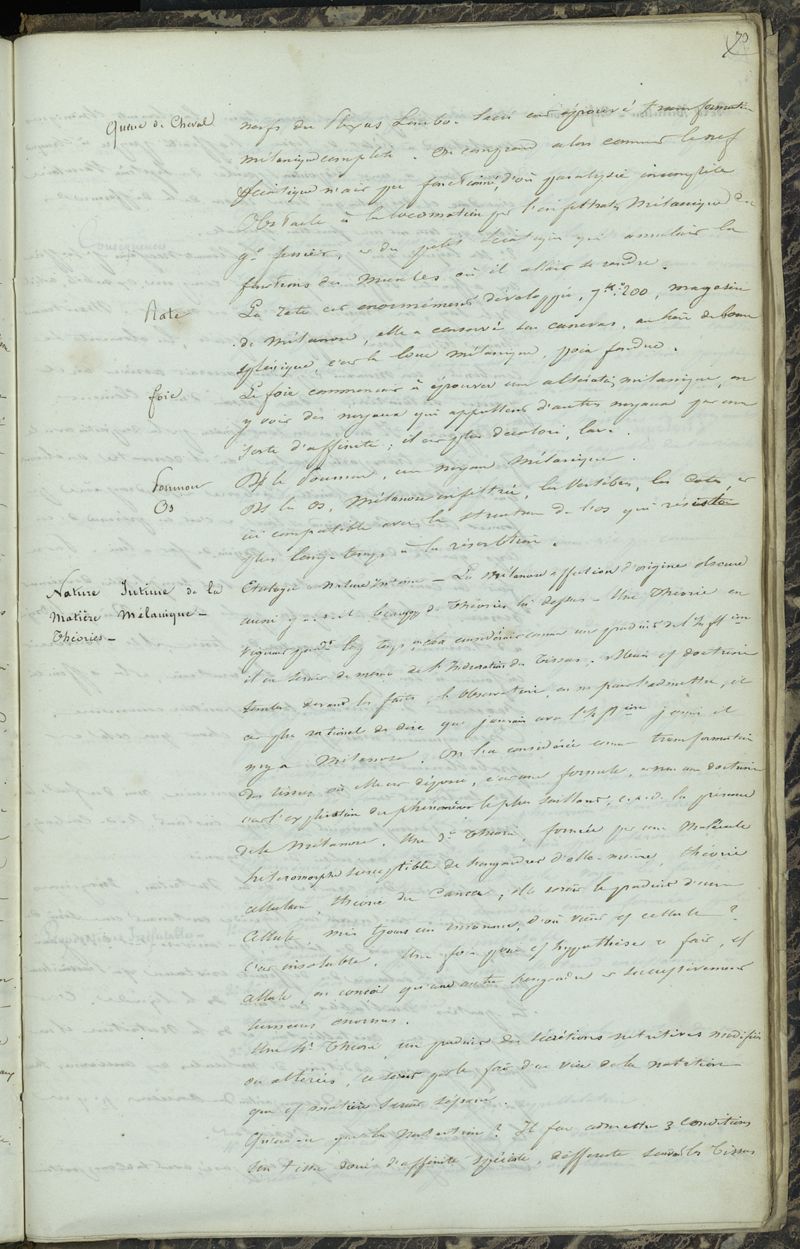 70
Queue de Cheval
nerfs du Plexus Lombo-Sacré ont éprouvé transformation
mélanique complète. On comprend alors comment le nerf
Sciatique n'ait pu fonctionner, d'où paralysie incomplète
Obstacle à la locomotion par l'infiltration Mélanique du
gd fessier, et du petit Sciatique qui annulait la
fonctions des Muscles où il allait se rendre.
Rate
La rate est énormément développée, 7k 200, magasin
de Mélanose, elle a conservé son canevas, au lieu de boue
splénique, c'est la boue mélanique, poix fondue.
foie
Le foie commençait à éprouver une altération mélanique, on
y voit des noyaux qui appellent d'autres noyaux par une
sorte d'affinité; il est plus décoloré, lavé.
Poumon
Ds le Poumon, un noyau Mélanique.
Os
Ds les os, Mélanose infiltrée, les Vertèbres, les Cotes, et
est compatible avec la structure de l'os qui résiste
plus long-temps à la résorbtion.
Nature Intime de la
Matière Mélanique -
Théories -
Etiologie et nature intime - La Mélanose affection d'origine obscure
aussi y a-t-il beaucoup de Théories là dessus - Une Théorie en
vigueur pendt long temps, a été considérée comme un produit de l'Inflon
il en serait de même de l'Induration des tissus. Mais cette doctrine
tombe devant les faits, l'observation, on ne peut l'admettre, il
est plus rationel de dire que jamais avec l'Inflon jamais il
n'y a Mélanose. On l'a considérée comme transformation
des tissus où elle se dépose, c'est une formule, et non une doctrine
c'est l'explication du phénomène le plus saillant, c.a.d. la présence
de la Mélanose. Une 3e Théorie, formée par une Molécule
hétéromorphe susceptible de s'engendrer d'elle-même, théorie
cellulaire, théorie du Cancer, elle serait le produit d'une
Cellule mis toujours en mouvement, d'où vient cette cellule?
C'est insoluble. Une fois que cette hypothèse est fait, cette
cellule, on conçoit qu'une autre s'engendre et successivement
tumeurs énormes.
Une 4e Théorie, un produit des sécrétions nutritives modifiées
ou altérées, ce serait par le fait d'un vice de la nutrition
que cette matière serait séparée.
Qu'est-ce que la Nutrition? Il faut admettre 3 Conditions
Un tissu doué d'affinité spéciale, différente suivant les tissus